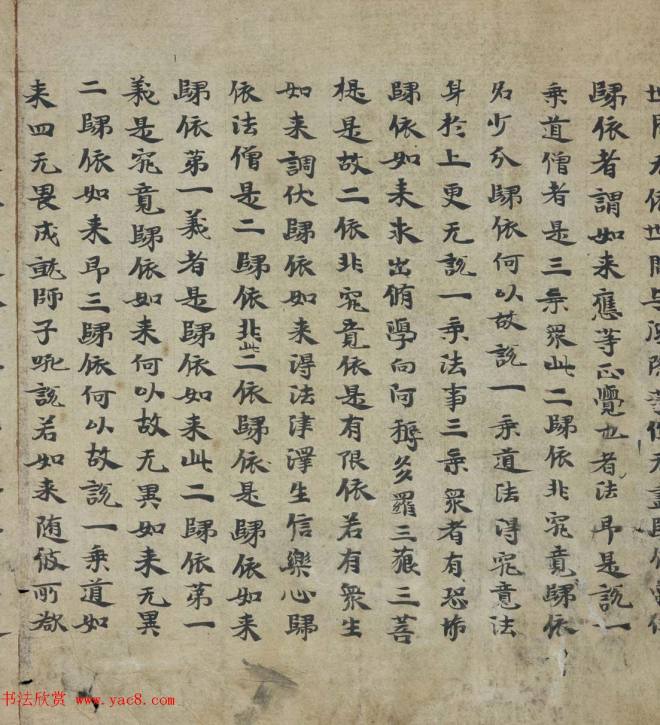 世間无依世間与後際等作无盡歸依常住
歸依者謂如来應等正覺也者法即是說一
乘道僧者是三乘眾此二歸依非究竟歸依
名少分歸依何以故說一乘道法得究竟法
身於上更无說一乘法事三乘眾者有恐怖
歸依如来求出脩學向阿耨多羅三藐三菩
提是故二依非究竟依是有限依若有眾生
如来調伏歸依如来得法津澤生信樂心歸
依法僧是二歸依非此二依歸依是歸依如来
歸依第一義者是歸依如来此二歸依第一
義是究竟歸依如来何以故无異如来无異
二歸依如来即三歸依何以故說一乘道如
来四无畏成就師子吼說若如来随彼所欲
书法欣赏 www.yac8.com